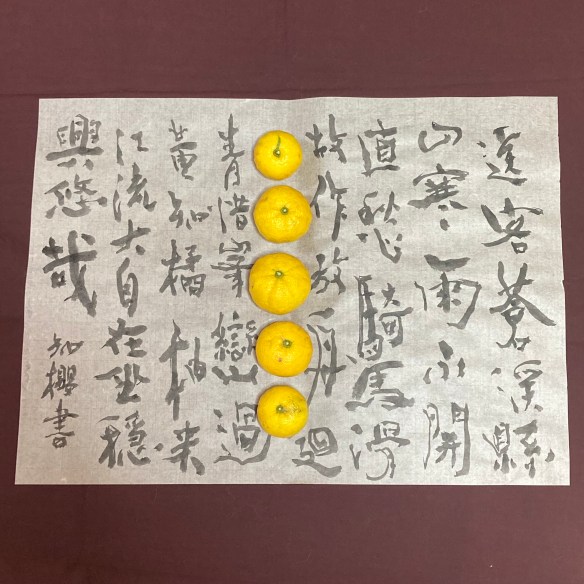 送客蒼溪縣
山寒雨不開
直愁騎馬滑
故作放舟廻
青惜峯巒過
黄知橘柚来
江流大自在坐穏
興悠哉
知櫻書